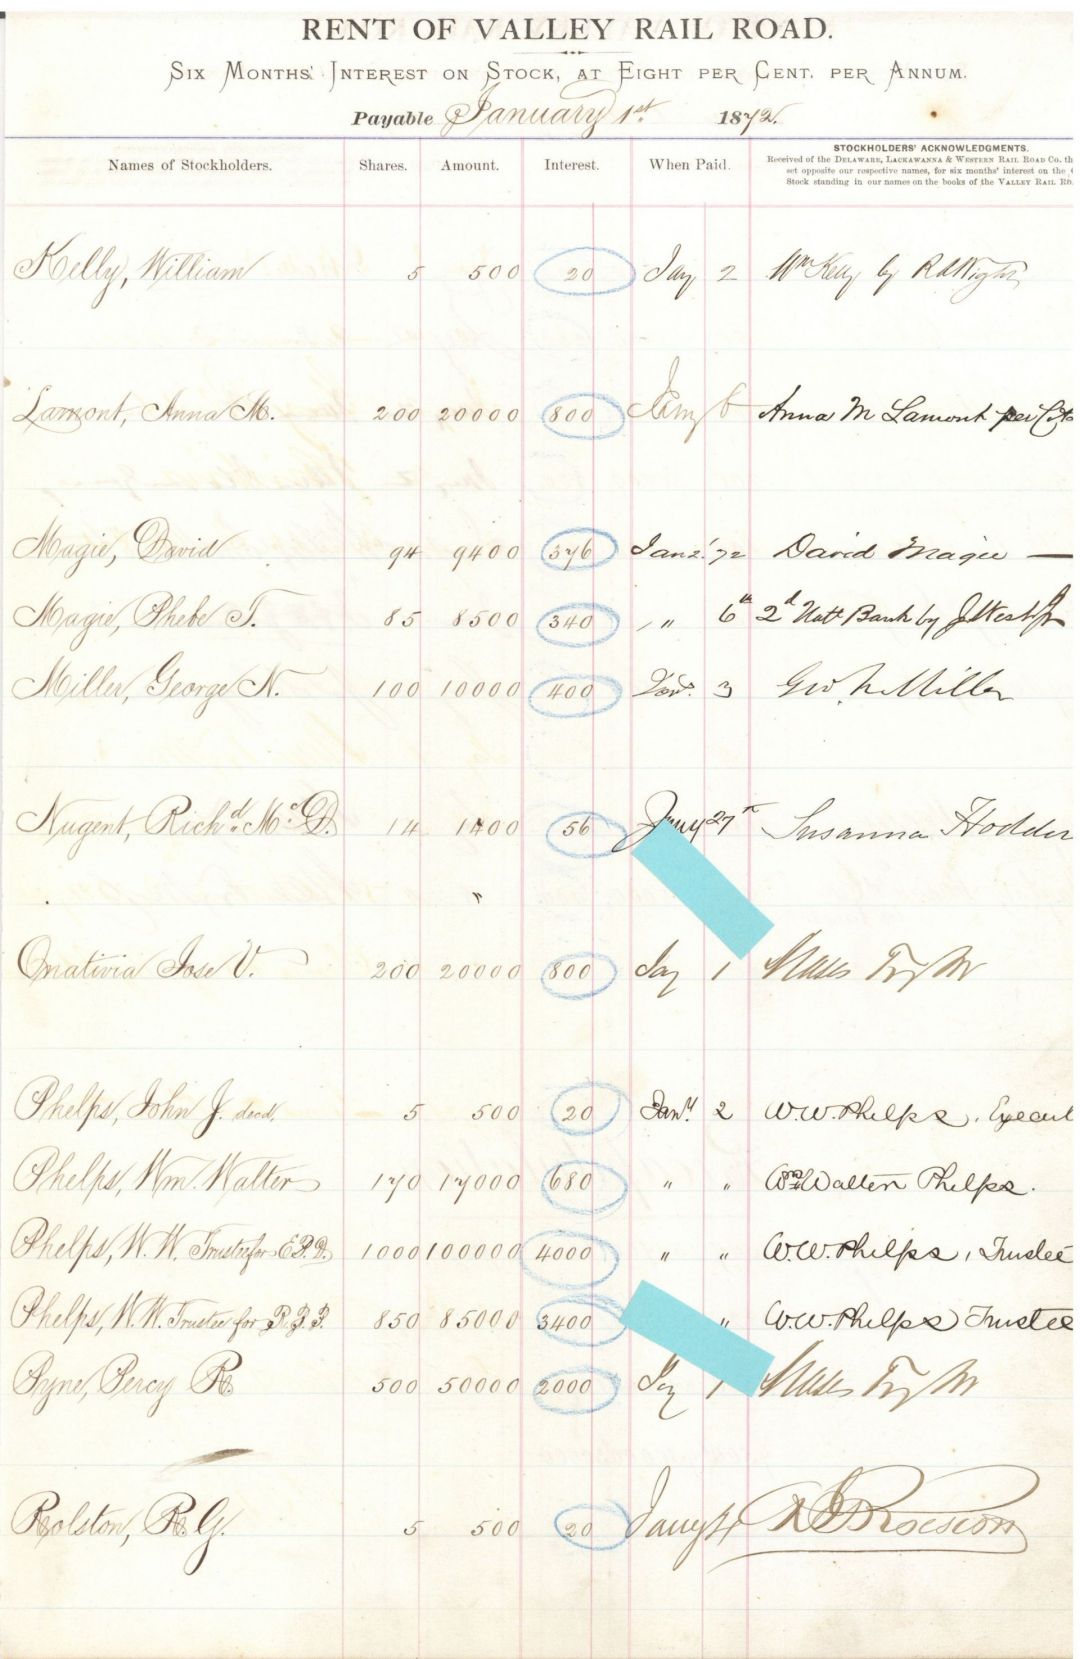 RENT OF VALLEY RAIL ROAD.
SIX MONTHS' INTEREST ON STOCK, AT EIGHT PER CENT. PER ANNUM.
Payable January 1st. 1872.
Names of Stockholders. Shares. Amount. Interest. When Paid. STOCKHOLDERS' ACKNOWLEDGMENTS.
Received of the DELAWARE, LACKAWANNA & WESTERN RAIL ROAD CO. th
set opposite our respective names, for six months' interest on the
Stock standing in our names on the books of the VALLEY RAIL RD.
Kelly, William 5 500 20 Jay 2 Wm Kelly by
Lamont, Anna M. 200 20000 800 6 Anna M Lamont per
Magie, David 94 9400 376 Jan 2 '72 David Magie —
Magie, Phebe T. 85 8500 340 " 6th 2d Natl Bank by J West
Miller, George N. 100 10000 400 3 Geo. N. Miller
Nugent, Richd. McD. 14 1400 56 Jany 27 Susanna Hodder
Onativia Jose V. 200 20000 800 Jay 1 Moses Tay
Phelps, John J. decd. 5 500 20 Jany. 2 W. W. Phelps, Execut
Phelps, Wm. Walter 170 17000 680 " " Wm Walter Phelps.
Phelps, W. W. Trustee for E.P.D. 1000 100000 4000 " " W. W. Phelps, Trustee
Phelps, W. W. Trustee for 850 85000 3400 " W. W. Phelps Trustee
Pyne, Percy R. 500 50000 2000 Jay 1 Moses Tay
Rolston, R. G. 5 500 20 Jany 4 R G Rolston